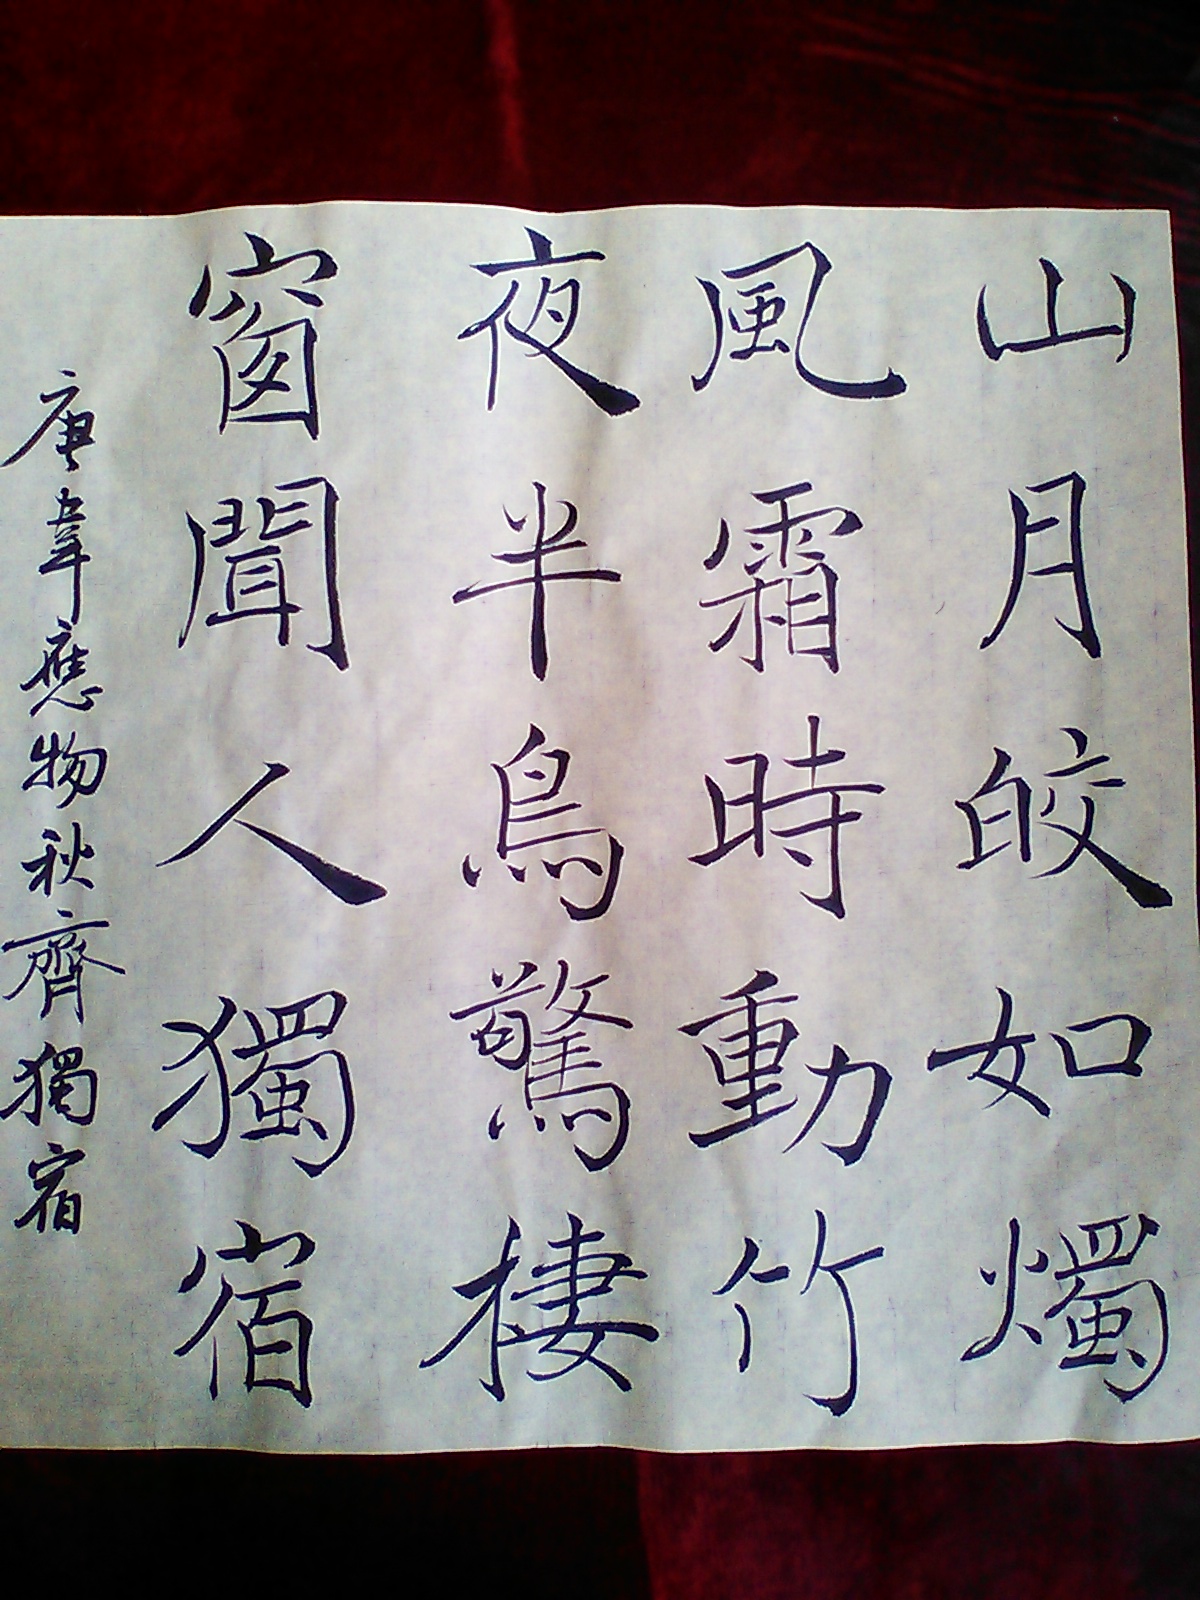 山月皎如燭
風霜時動竹
夜半鳥驚棲
窗聞人獨宿
唐韋應物秋齊獨宿